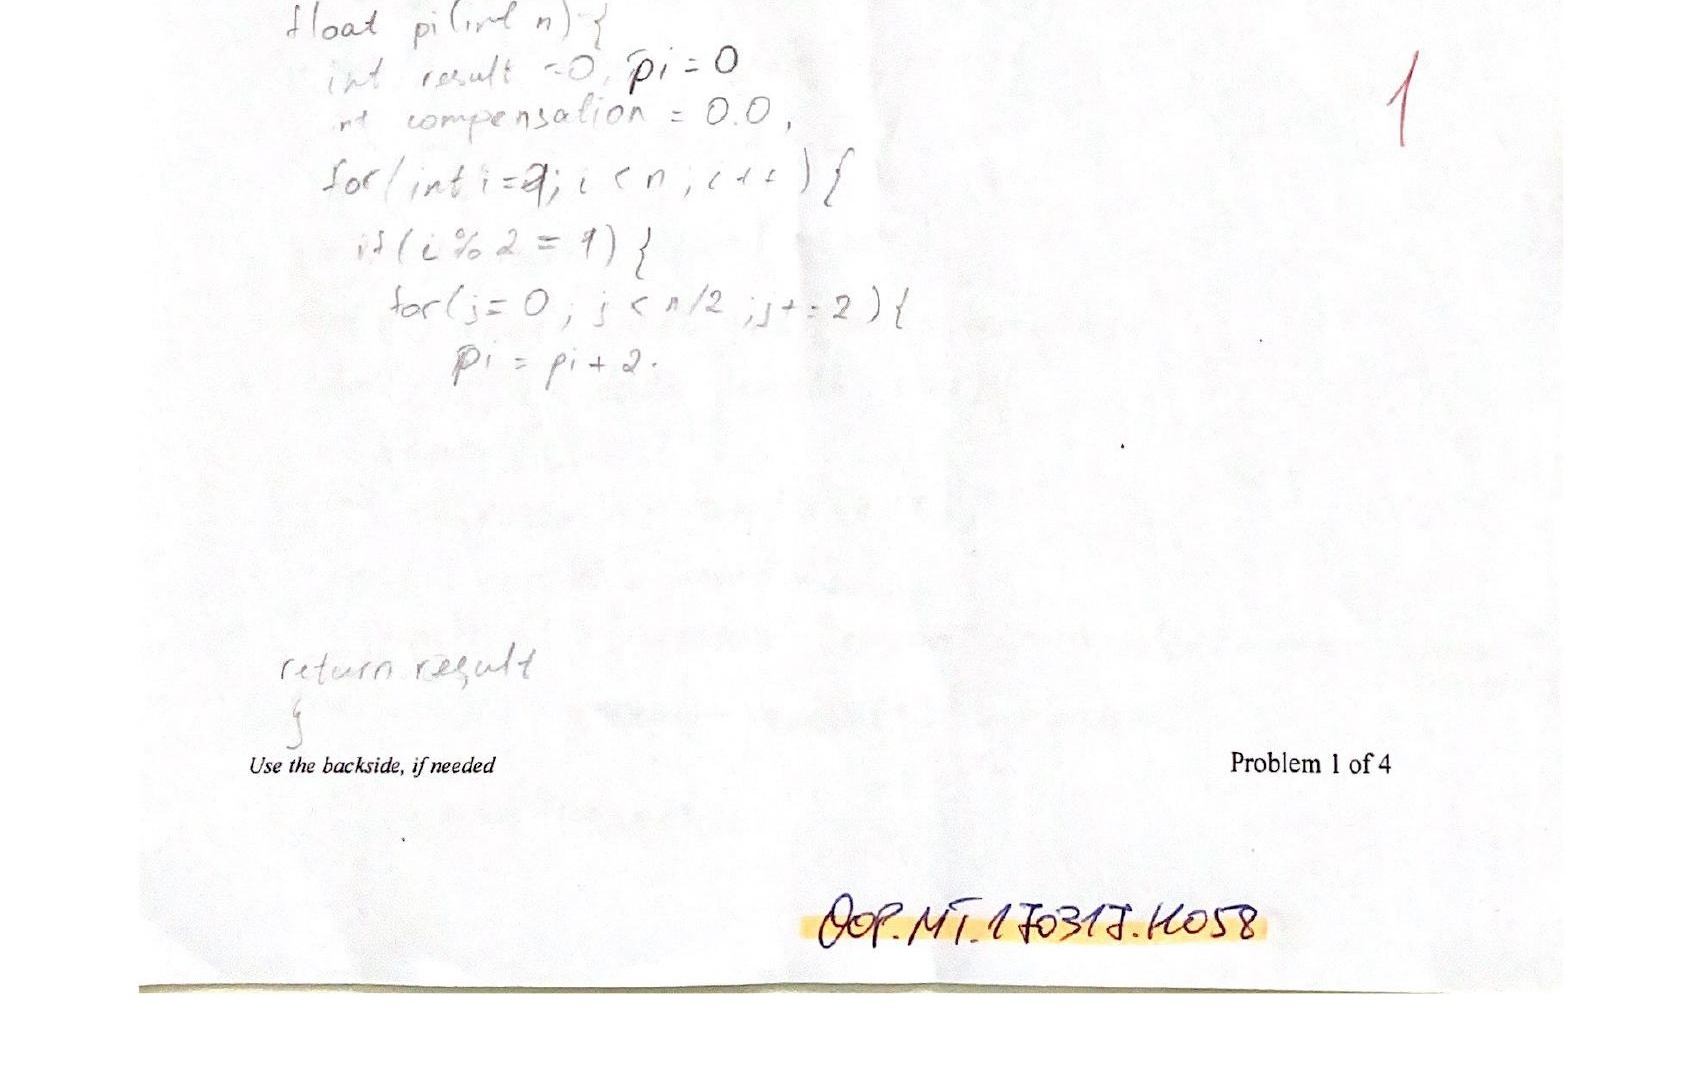 float pi(int n) {
int result = 0, pi = 0
int compensation = 0.0,
1
for(int i = 2; i < n; i++) {
if(i % 2 = 1) {
for(j = 0; j < n/2; j += 2) {
pi = pi + 2.
return result
}
Use the backside, if needed
Problem 1 of 4
OOP.MT.170317.K058